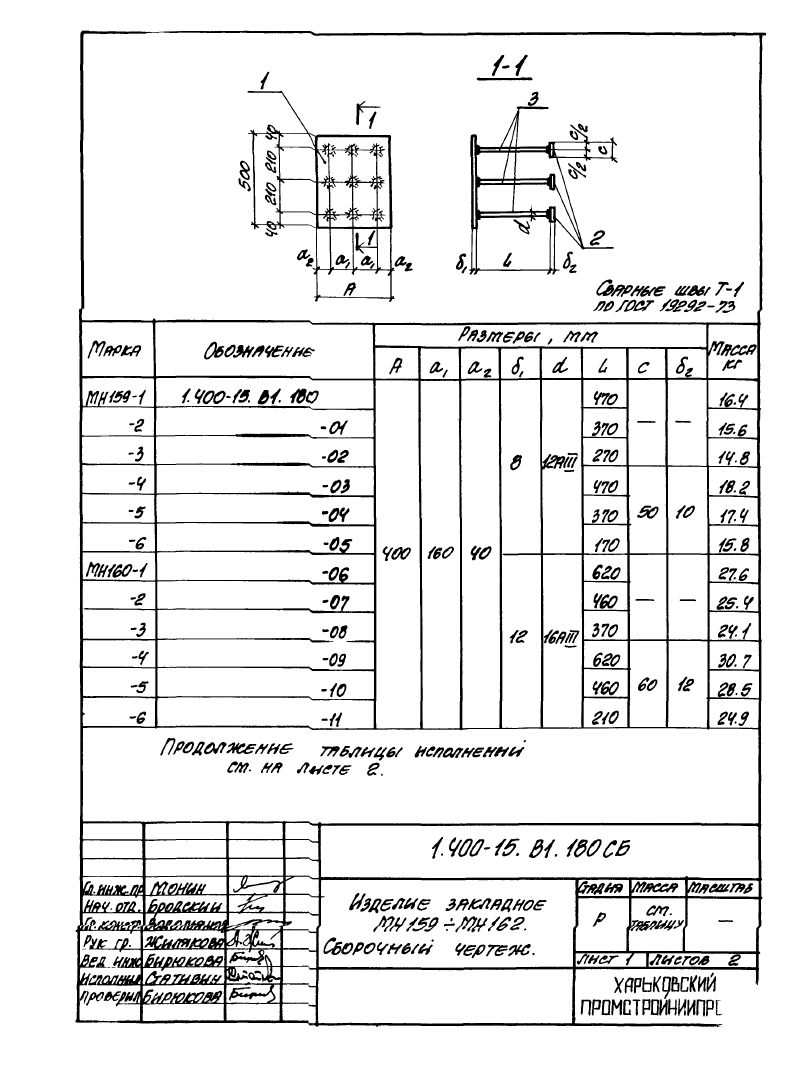 1-1
1
1
1
3
2
40
210
210
40
500
a₂ a₁ a₁ a₂
A
c/2
c/2
c
d
δ₁ L δ₂
Сварные швы Т-1
по ГОСТ 19292-73
Марка Обозначение Размеры, мм Масса кг
A a₁ a₂ δ₁ d L c δ₂
МН159-1 1.400-15. В1. 180 400 160 40 8 12АIII 470 — — 16.4
-2 -01 370 15.6
-3 -02 270 14.8
-4 -03 470 50 10 18.2
-5 -04 370 17.4
-6 -05 170 15.8
МН160-1 -06 12 16АIII 620 — — 27.6
-2 -07 460 25.4
-3 -08 370 24.1
-4 -09 620 60 12 30.7
-5 -10 460 28.5
-6 -11 210 24.9
Продолжение таблицы исполнений
см. на листе 2.
1.400-15. В1. 180 СБ
Гл.инж.пр Монин
Нач. отд. Бродский
Гл. констр.
Рук гр. Жилякова
Вед инж Бирюкова
Исполнил Стативин
Проверил Бирюкова
Изделие закладное
МН159÷МН162.
Сборочный чертеж.
Стадия Масса Масштаб
Р см. таблицу —
Лист 1 Листов 2
ХАРЬКОВСКИЙ
ПРОМСТРОЙНИИПРО